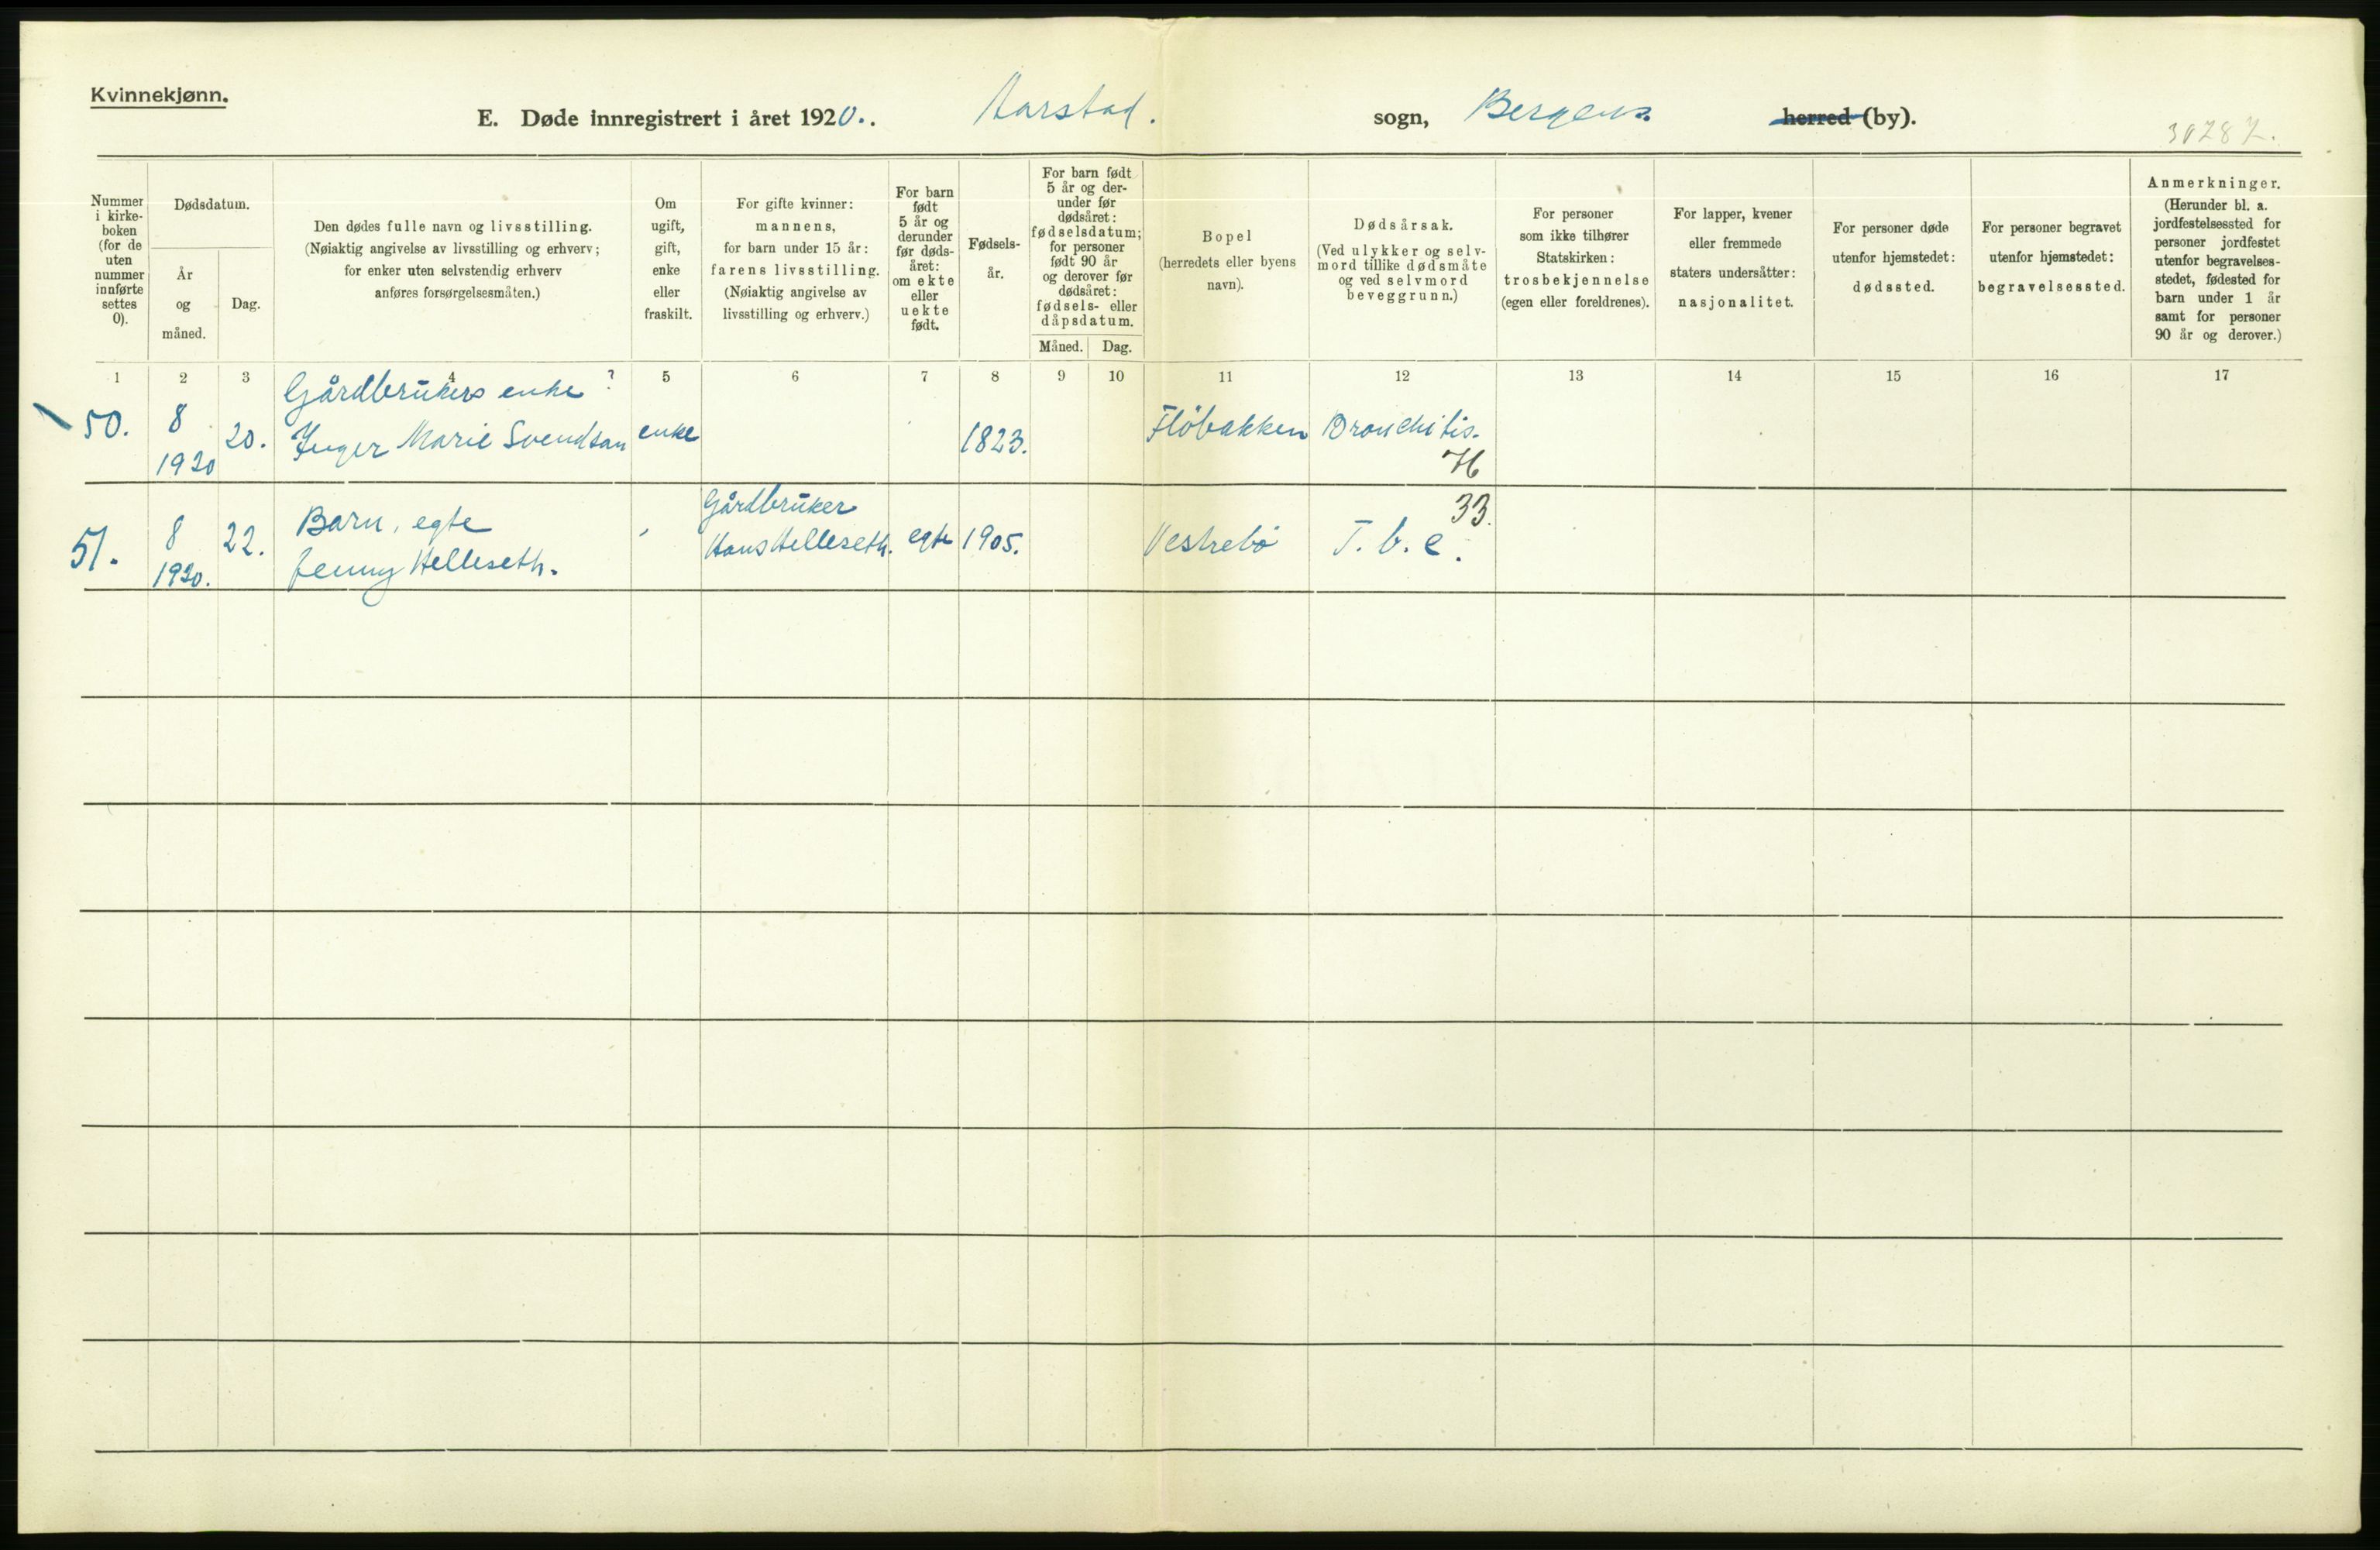 Kvinnekjønn.
E. Døde innregistrert i året 1920. . Aarstad. sogn, Bergens herred (by).
Nummer i kirke-boken (for de uten nummer innførte settes 0).
Dødsdatum.
År og måned.
Dag.
Den dødes fulle navn og livsstilling.
(Nøiaktig angivelse av livsstilling og erhverv;
for enker uten selvstendig erhverv
anføres forsørgelsesmåten.)
Om
ugift,
gift,
enke
eller
fraskilt.
For gifte kvinner:
mannens,
for barn under 15 år:
farens livsstilling.
(Nøiaktig angivelse av
livsstilling og erhverv.)
For barn
født
5 år og
derunder
før døds-
året:
om ekte
eller
uekte
født.
Fødsels-
år.
For barn født
5 år og der-
under før
dødsåret:
fødselsdatum;
for personer
født 90 år
og derover før
dødsåret:
fødsels- eller
dåpsdatum.
Måned. Dag.
Bopel
(herredets eller byens
navn).
Dødsårsak.
(Ved ulykker og selv-
mord tillike dødsmåte
og ved selvmord
beveggrunn.)
For personer
som ikke tilhører
Statskirken:
trosbekjennelse
(egen eller foreldrenes).
For lapper, kvener
eller fremmede
staters undersåtter:
nasjonalitet.
For personer døde
utenfor hjemstedet:
dødssted.
For personer begravet
utenfor hjemstedet:
begravelsessted.
Anmerkninger.
(Herunder bl. a.
jordfestelsessted for
personer jordfestet
utenfor begravelses-
stedet, fødested for
barn under 1 år
samt for personer
90 år og derover.)
1 2 3 4 5 6 7 8 9 10 11 12 13 14 15 16 17
50.
8
1920
20.
Gårdbrukers enke ?
Inger Marie Svendsen
enke
1823.
Flöbakken
Bronchitis.
76
51.
8
1920.
22.
Barn, egte
Jenny Helleseth.
Gårdbruker
Hans Helleseth.
egte
1905.
Vestrebö
33.
T.b.c.